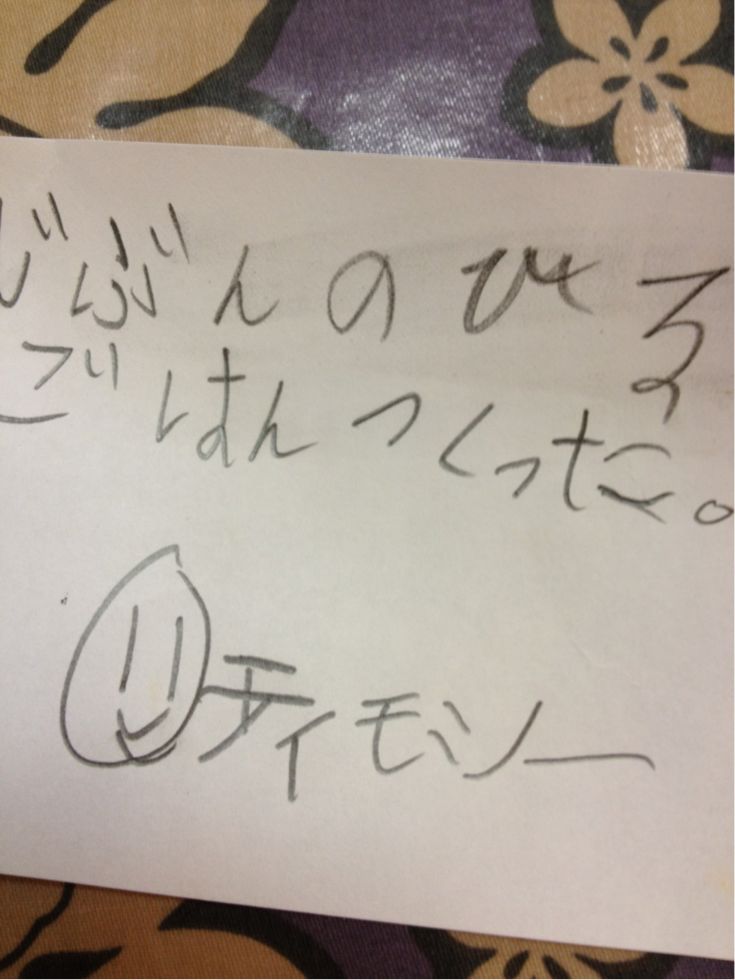 じぶんのひる
ごはんつくった。
ティモシー